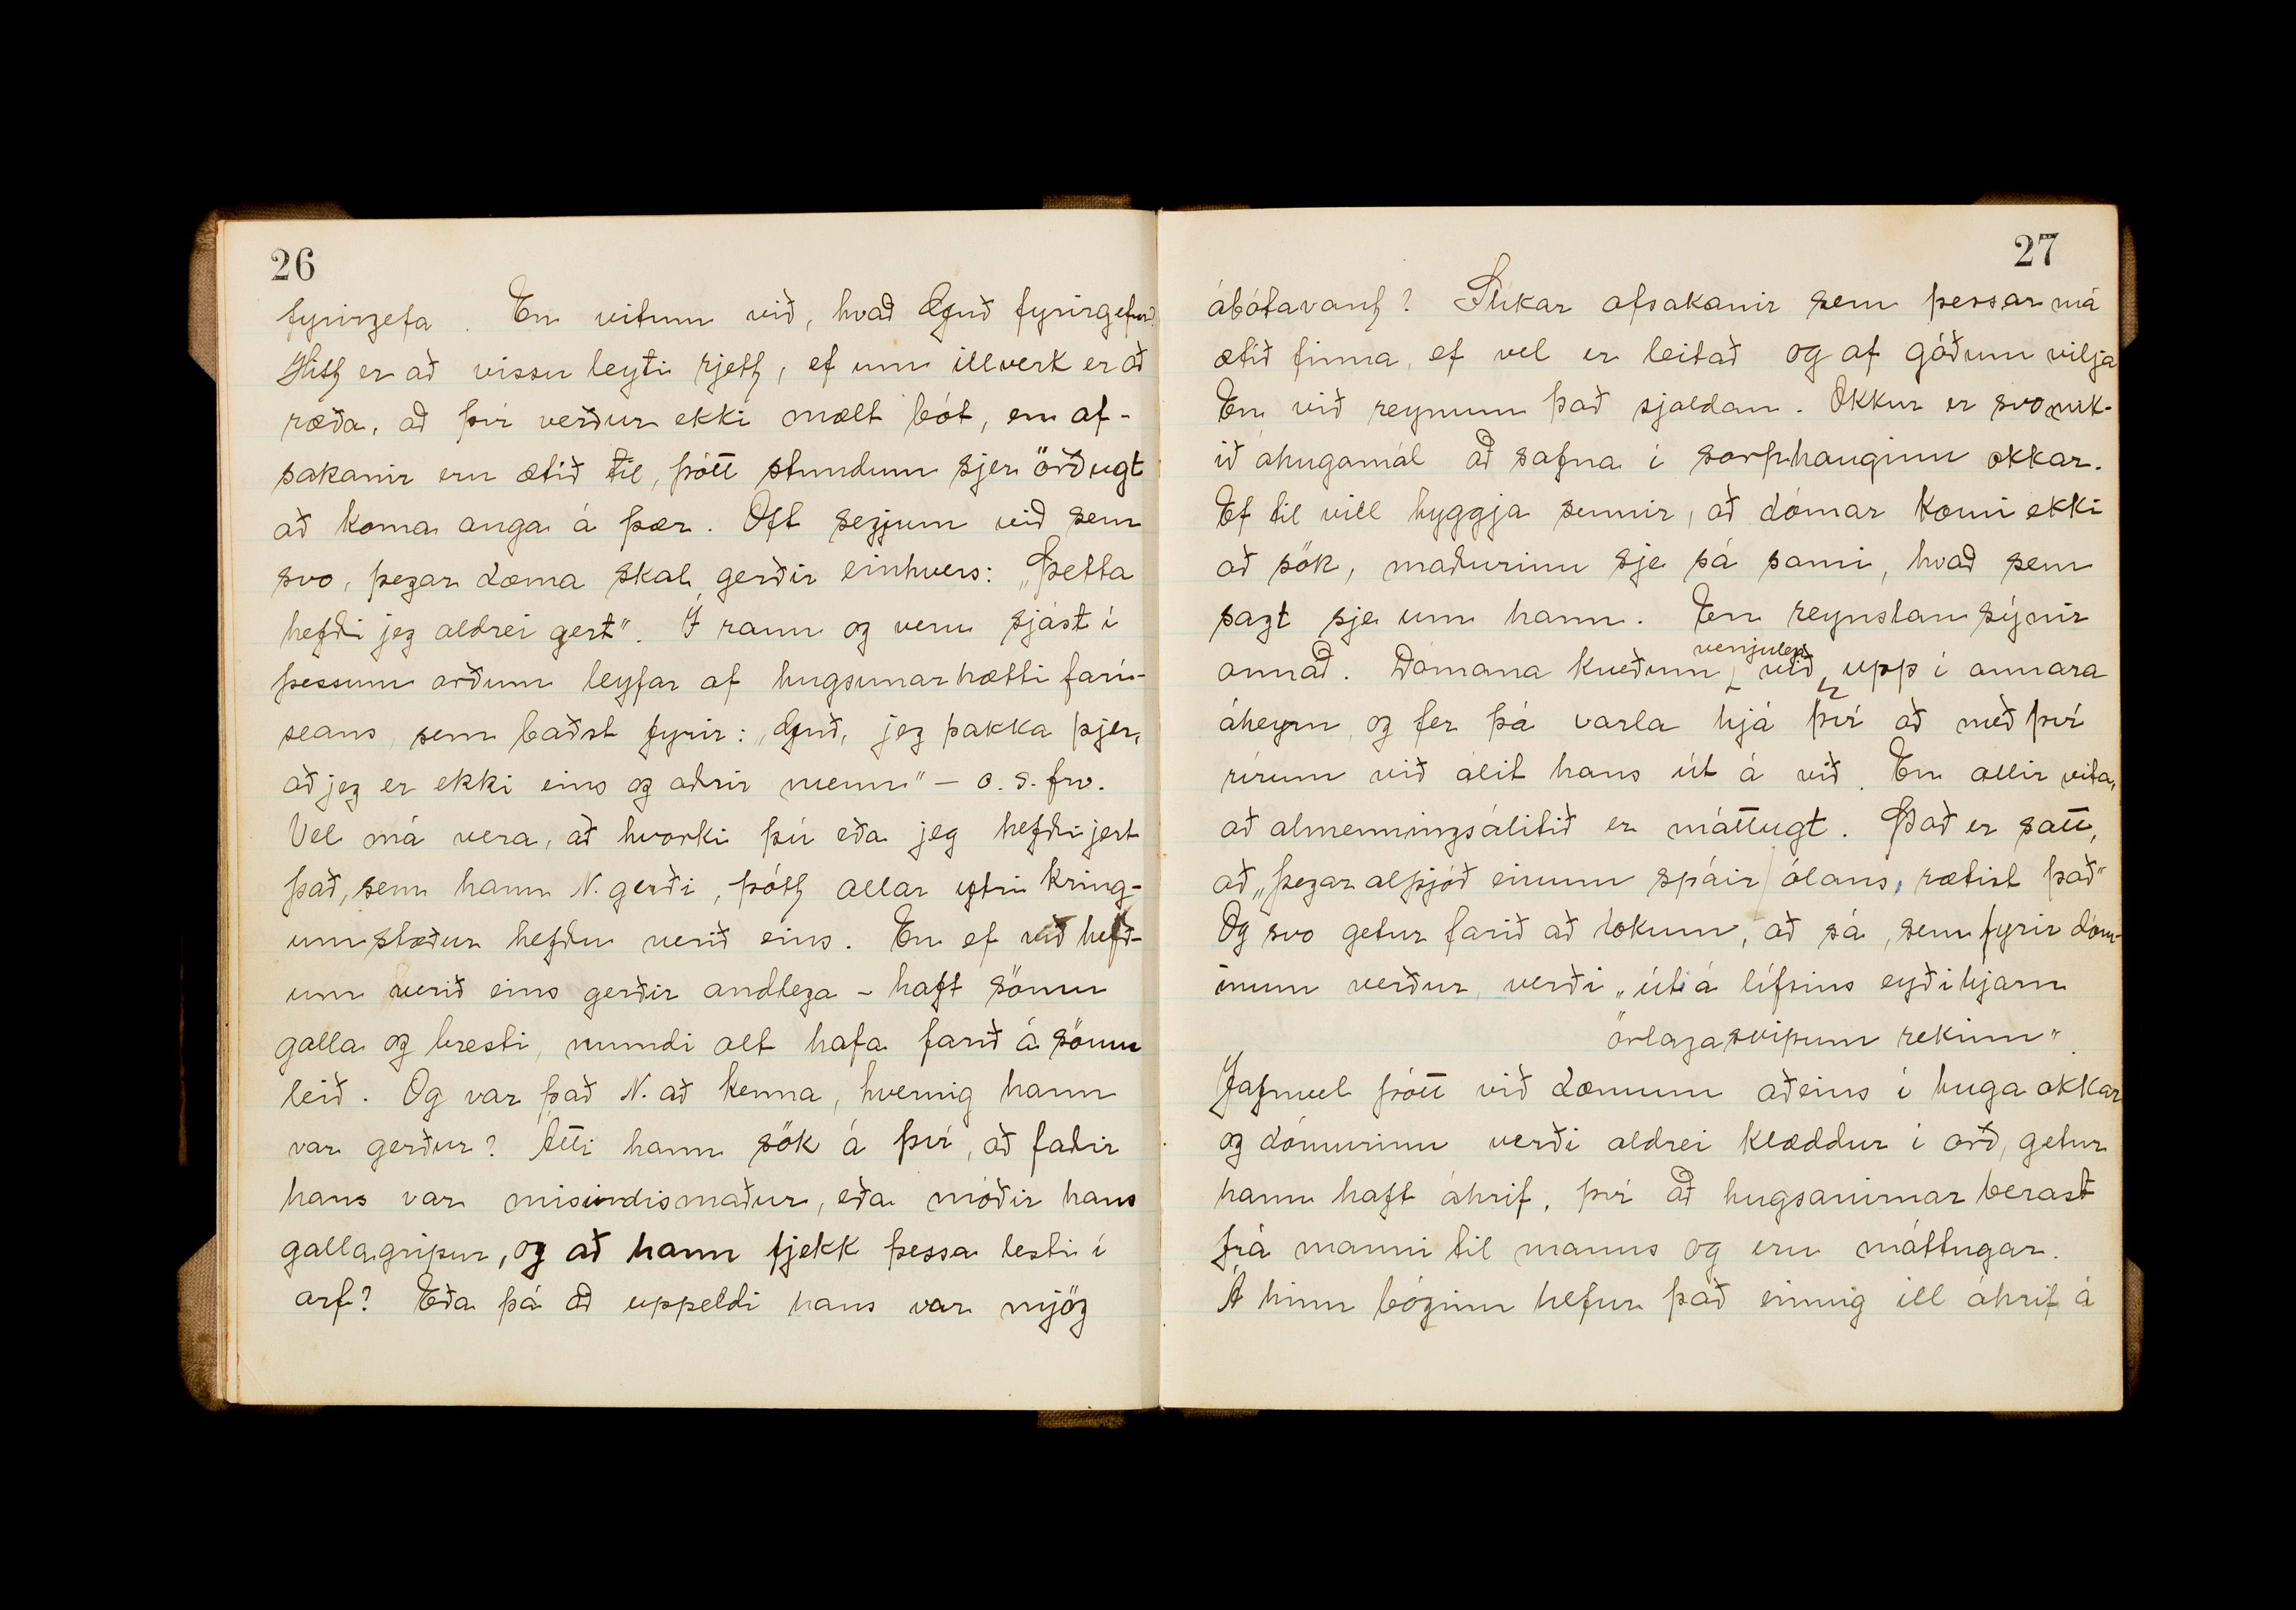 26
fyrirgefa. En vitum við, hvað Guð fyrirgefur?
Hitt er að vissu leyti rjett, ef um illverk er að
ræða, að því verður ekki mælt bót, en af-
sakanir eru ætíð til, þótt stundum sjeu örðugt
að koma auga á þær. Oft segjum við sem
svo, þegar dæma skal gerðir einhvers: „Þetta
hefði jeg aldrei gert". Í raun og veru sjást í
þessum orðum leyfar af hugsunarhætti farí-
seans, sem baðst fyrir: „Guð, jeg þakka þjer,
að jeg er ekki eins og aðrir menn" – o. s. frv.
Vel má vera, að hvorki þú eða jeg hefði gert
það, sem hann N. gerði, þótt allar ytri kring-
umstæður hefðu verið eins. En ef við hefð-
um verið eins gerðir andlega – haft sömu
galla og bresti, mundi alt hafa farið á sömu
leið. Og var það N. að kenna, hvernig hann
var gerður? Átti hann sök á því, að faðir
hans var misindismaður, eða móðir hans
gallagripur, og að hann fjekk þessa lesti í
arf? Eða þá að uppeldi hans var mjög
27
ábótavant? Slíkar afsakanir sem þessar má
ætíð finna, ef vel er leitað og af góðum vilja
En við reynum það sjaldan. Okkur er svo mik-
ið áhugamál að safna í sorphauginn okkar.
Ef til vill hyggja sumir, að dómar komi ekki
að sök, maðurinn sje sá sami, hvað sem
sagt sje um hann. En reynslan sýnir
annað. Dómana kveðum við venjulega upp í annara
áheyrn, og fer þá varla hjá því að með því
rírum við álit hans út á við. En allir vita,
að almenningsálitið er máttugt. Það er satt,
að „þegar alþjóð einum spáir ólans, rætist það"
Og svo getur farið að lokum, að sá, sem fyrir dóm-
inum verður, verði „úti á lífsins eyðihjarn
örlagasvipum rekinn".
Jafnvel þótt við dæmum aðeins í huga okkar
og dómurinn verði aldrei klæddur í orð, getur
hann haft áhrif, því að hugsanirnar berast
frá manni til manns og eru máttugar.
Á hinn bóginn hefur það einnig ill áhrif á